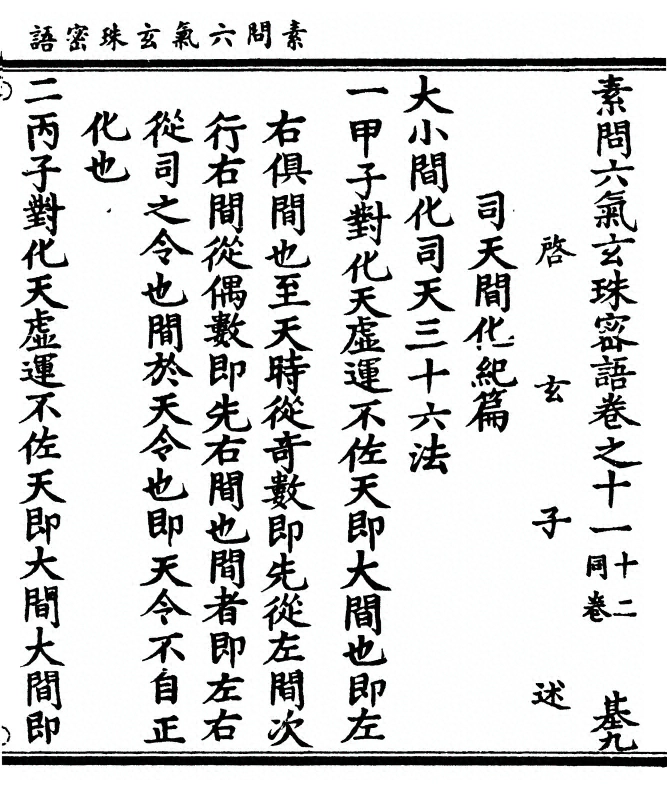 素問六氣玄珠密語
素問六氣玄珠密語卷之十一十二同卷 基九
啓玄子述
司天間化紀篇
大小間化司天三十六法
一甲子對化天虛運不佐天即大間也即左
右俱間也至天時從竒數即先從左間次
行右間從偶數即先右間也間者即左右
從司之令也間於天令也即天令不自正
化也
二丙子對化天虛運不佐天即大間大間即